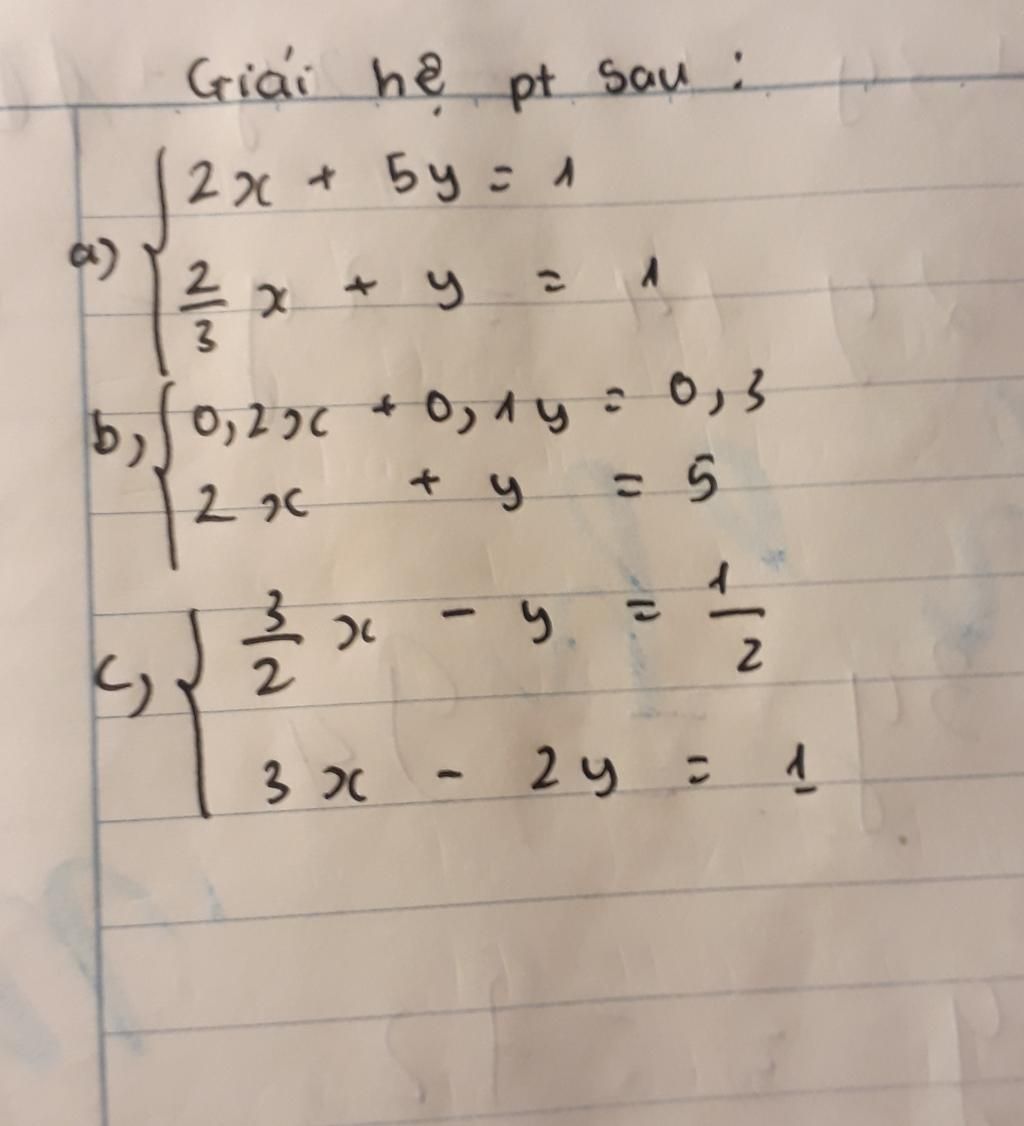 Giải hệ pt sau :
a) { 2x + 5y = 1
2/3 x + y = 1
b, { 0,2x + 0,1y = 0,3
2x + y = 5
c, { 3/2 x - y = 1/2
3x - 2y = 1